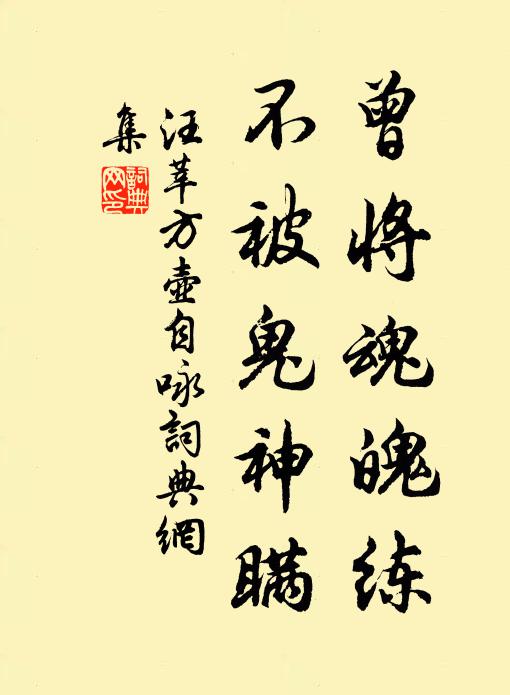 曾将魂魄练
不被鬼神瞒
汪莘方壶自咏詞典網
集
詞典網印